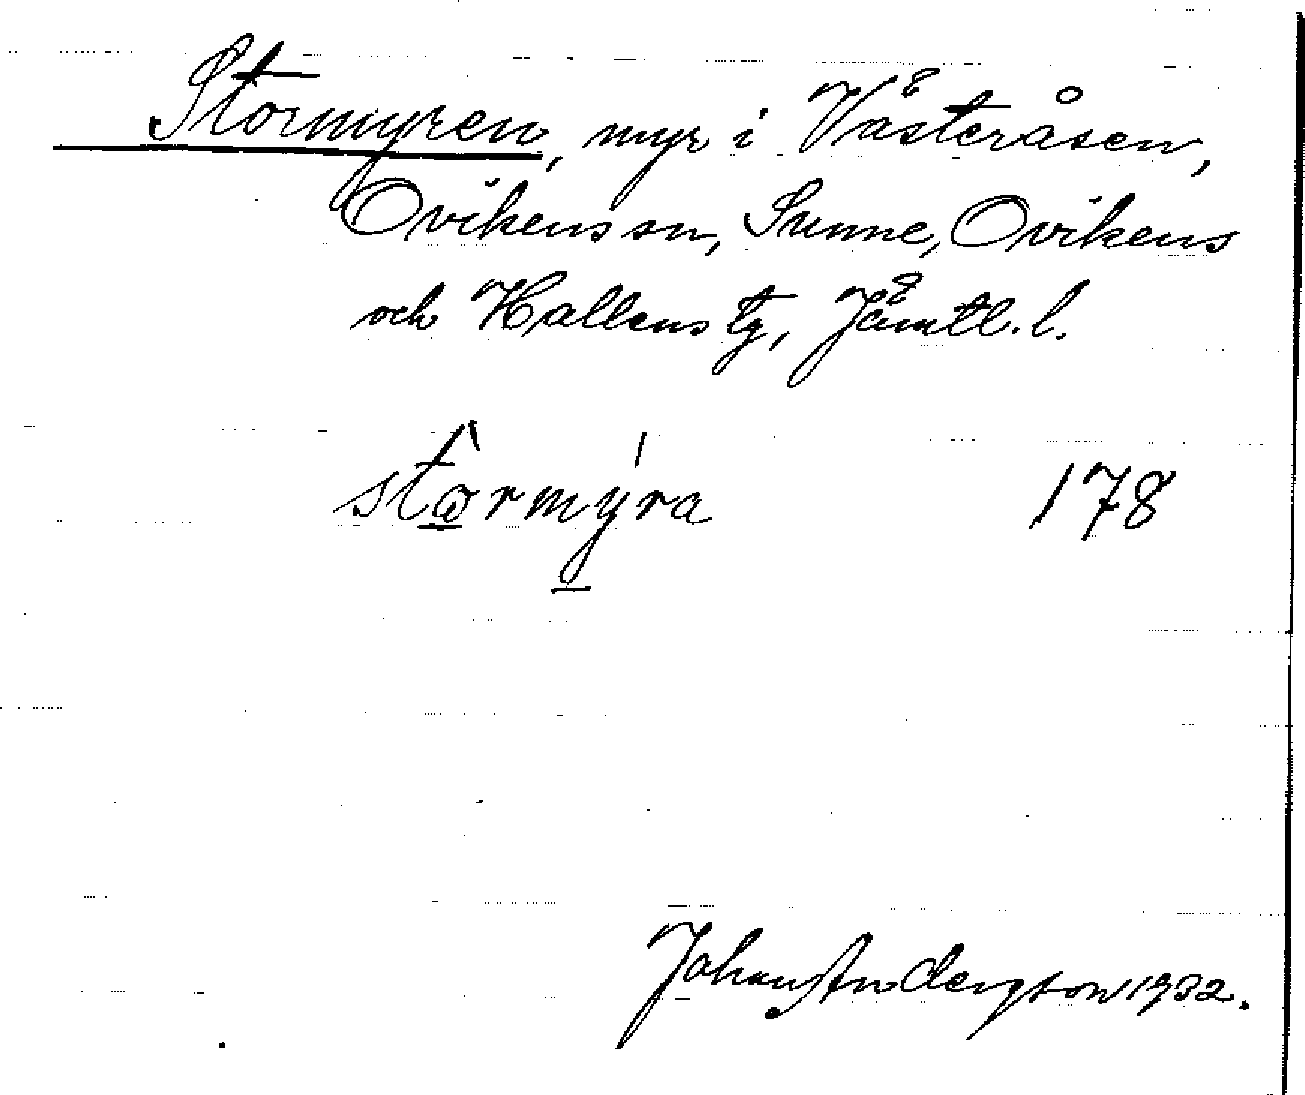 Stormyren, myr i Västeråsen,
Ovikens sn, Sunne, Ovikens
och Hallens tg, Jämtl. l.
stòrmýra 178
Johan Anderson 1932.